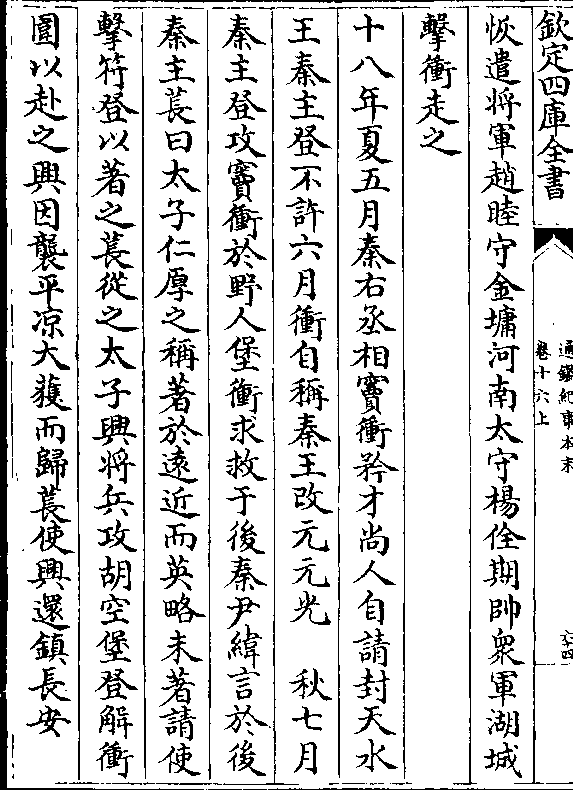 欽定四庫全書
通鑑紀事本末
卷十六上
六十四
恢遣將軍趙睦守金墉河南太守楊佺期帥衆軍湖城
擊衝走之
十八年夏五月秦右丞相竇衝矜才尚人自請封天水
王秦主登不許六月衝自稱秦王改元元光　秋七月
秦主登攻竇衝於野人堡衝求救于後秦尹緯言於後
秦主萇曰太子仁厚之稱著於遠近而英略未著請使
擊苻登以著之萇從之太子興將兵攻胡空堡登解衝
圍以赴之興因襲平凉大獲而歸萇使興還鎮長安